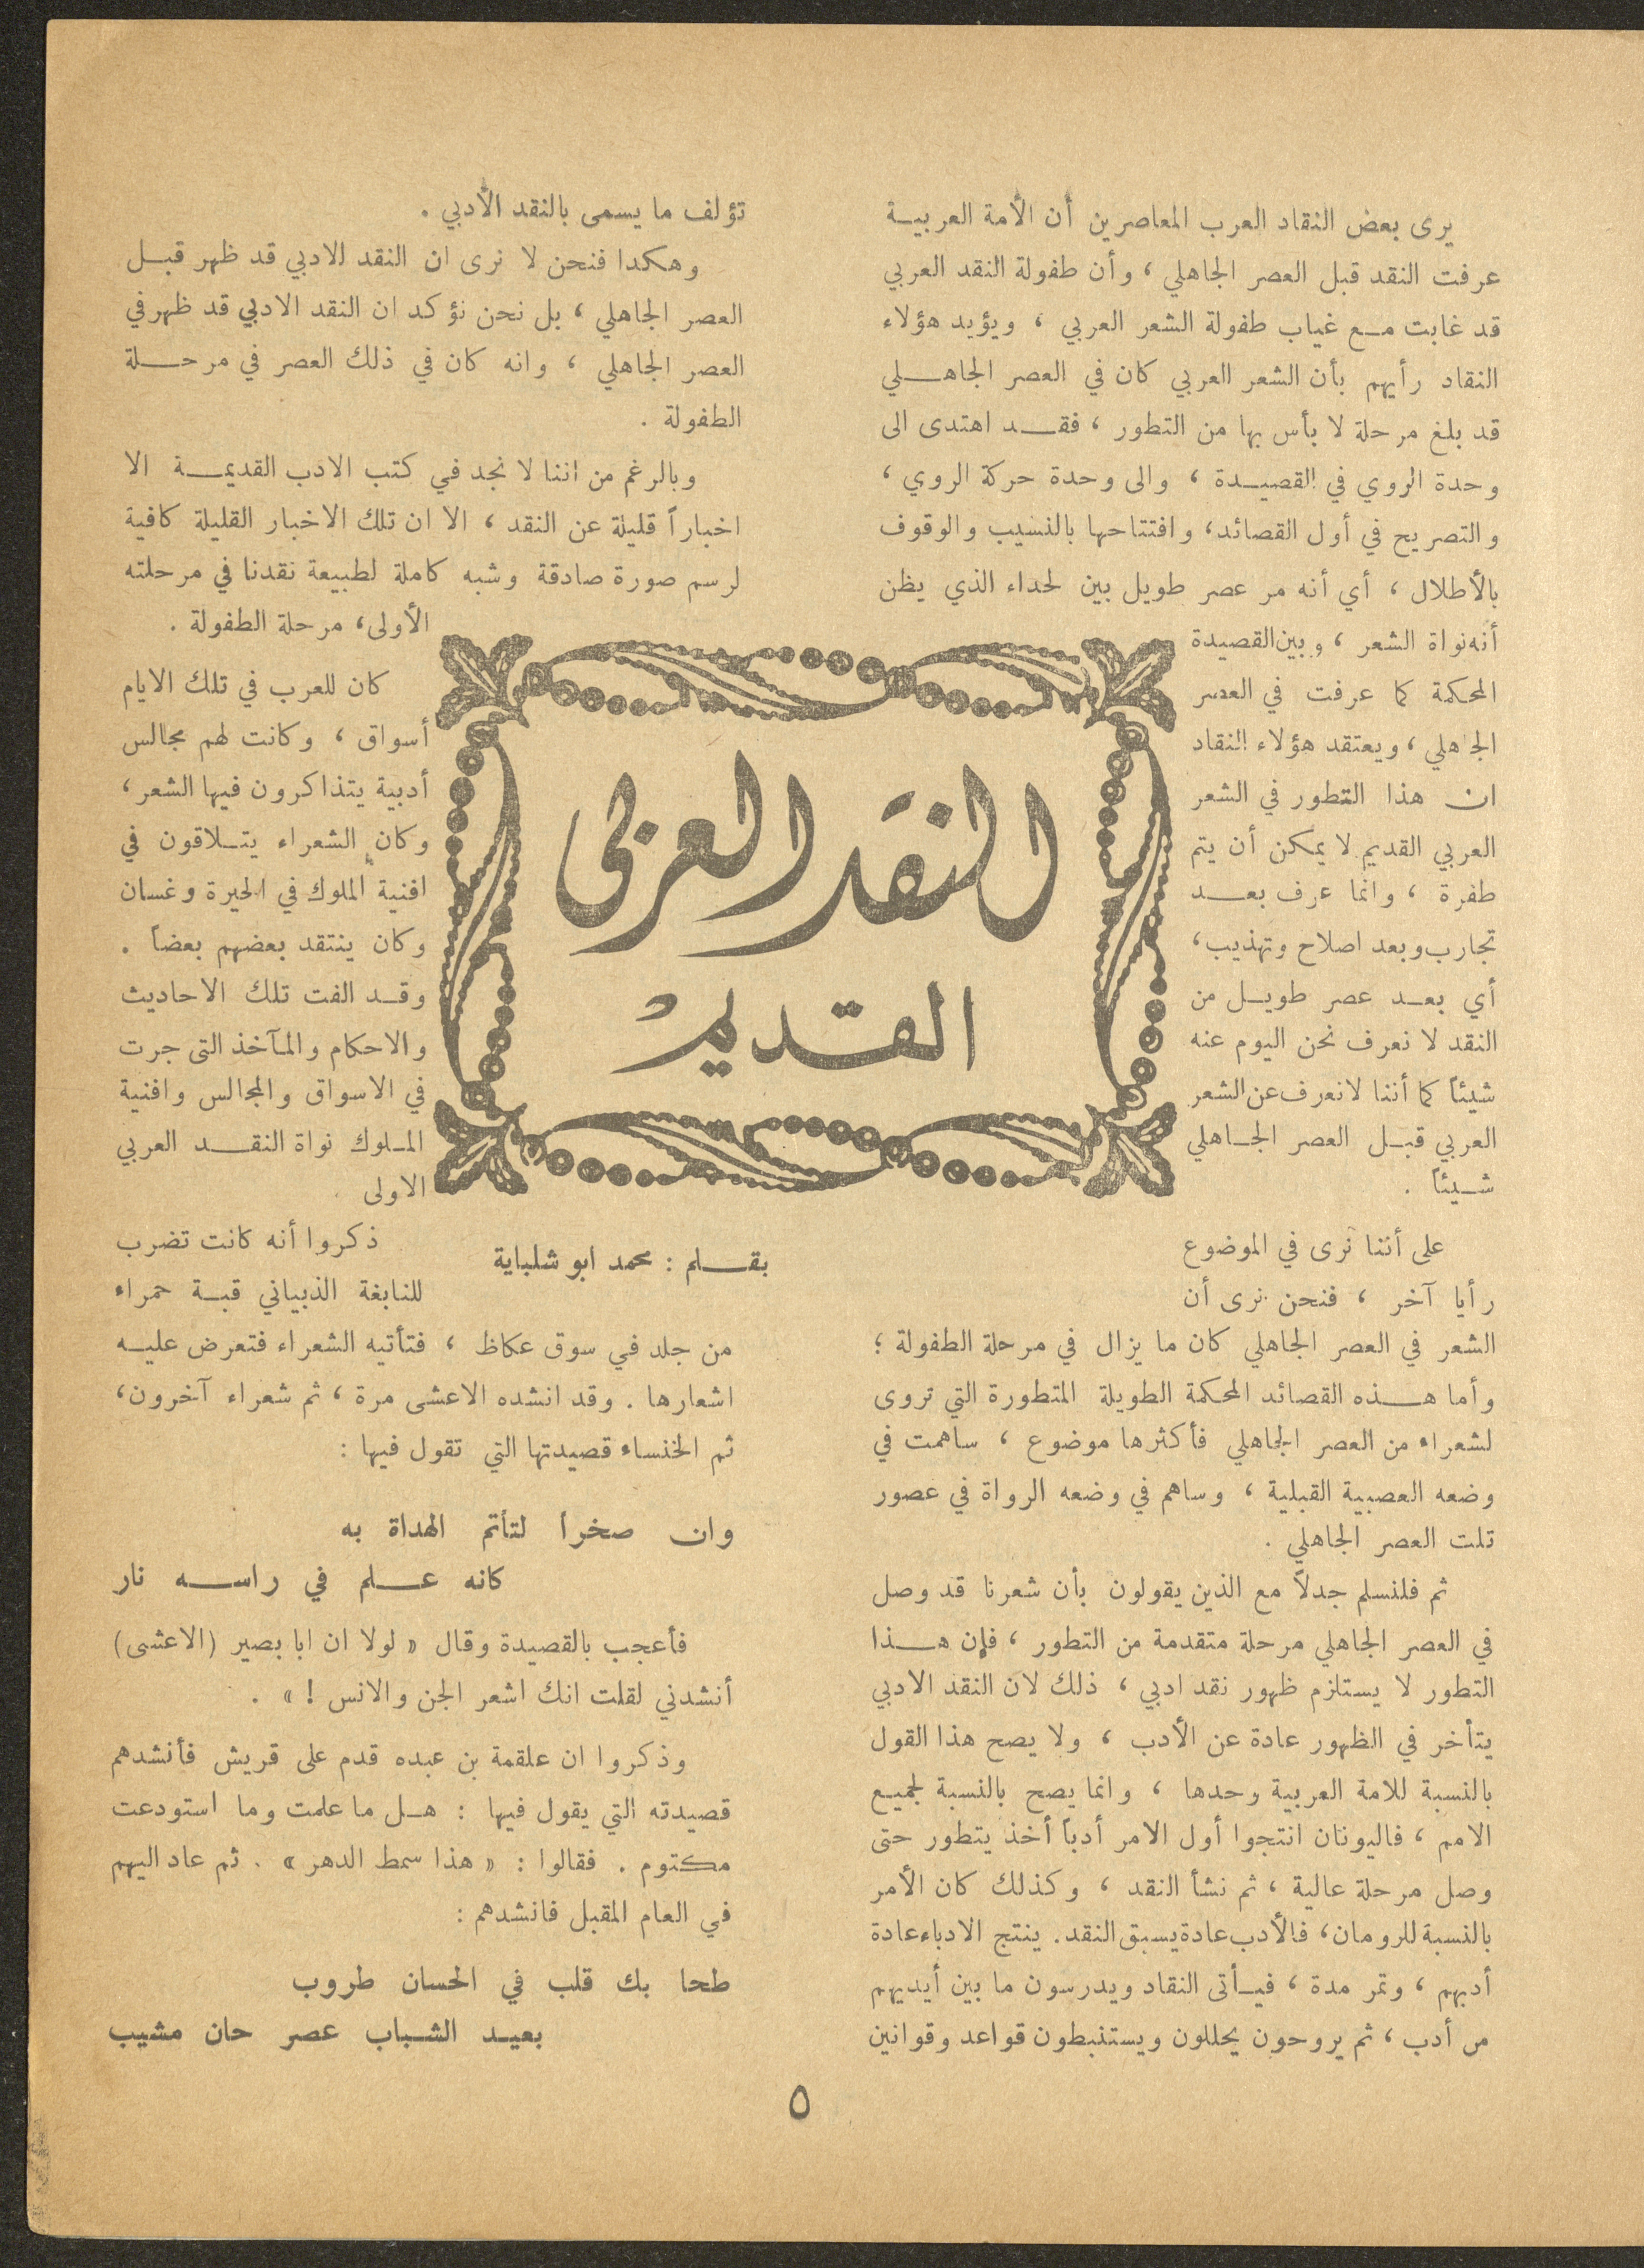 النقد العربي
القديم
بقلم : محمد ابو شلباية
يرى بعض النقاد العرب المعاصرين أن الأمة العربية
عرفت النقد قبل العصر الجاهلي ، وأن طفولة النقد العربي
قد غابت مع غياب طفولة الشعر العربي ، ويؤيد هؤلاء
النقاد رأيهم بأن الشعر العربي كان في العصر الجاهلي
قد بلغ مرحلة لا بأس بها من التطور ، فقد اهتدى الى
وحدة الروي في القصيدة ، والى وحدة حركة الروي ،
والتصريح في أول القصائد، وافتتاحها بالنسيب والوقوف
بالأطلال ، أي أنه مر عصر طويل بين لحداء الذي يظن
أنه نواة الشعر ، وبين القصيدة
المحكمة كما عرفت في العصر
الجاهلي ، ويعتقد هؤلاء النقاد
ان هذا التطور في الشعر
العربي القديم لا يمكن أن يتم
طفرة ، وانما عرف بعد
تجارب وبعد اصلاح وتهذيب،
أي بعد عصر طويل من
النقد لا نعرف نحن اليوم عنه
شيئاً كما أننا لا نعرف عن الشعر
العربي قبل العصر الجاهلي
شيئاً .
على أننا نرى في الموضوع
رأيا آخر ، فنحن نرى أن
الشعر في العصر الجاهلي كان ما يزال في مرحلة الطفولة ؛
وأما هذه القصائد المحكمة الطويلة المتطورة التي تروى
لشعراء من العصر الجاهلي فأكثرها موضوع ، ساهمت في
وضعه العصبية القبلية ، وساهم في وضعه الرواة في عصور
تلت العصر الجاهلي .
ثم فلنسلم جدلاً مع الذين يقولون بأن شعرنا قد وصل
في العصر الجاهلي مرحلة متقدمة من التطور ، فإن هذا
التطور لا يستلزم ظهور نقد ادبي ، ذلك لان النقد الادبي
يتأخر في الظهور عادة عن الأدب ، ولا يصح هذا القول
بالنسبة للامة العربية وحدها ، وانما يصح بالنسبة لجميع
الامم ، فاليونان انتجوا أول الامر أدباً أخذ يتطور حتى
وصل مرحلة عالية ، ثم نشأ النقد ، وكذلك كان الأمر
بالنسبة للرومان، فالأدب عادة يسبق النقد. ينتج الادباء عادة
أدبهم ، وتمر مدة ، فيأتى النقاد ويدرسون ما بين أيديهم
من أدب ، ثم يروحون يحللون ويستنبطون قواعد وقوانين
تؤلف ما يسمى بالنقد الأدبي .
وهكدا فنحن لا نرى ان النقد الادبي قد ظهر قبل
العصر الجاهلي ، بل نحن نؤكد ان النقد الادبي قد ظهر في
العصر الجاهلي ، وانه كان في ذلك العصر في مرحلة
الطفولة .
وبالرغم من اننا لا نجد في كتب الادب القديمة الا
اخباراً قليلة عن النقد ، الا ان تلك الاخبار القليلة كافية
لرسم صورة صادقة وشبه كاملة لطبيعة نقدنا في مرحلته
الأولى، مرحلة الطفولة .
كان للعرب في تلك الايام
أسواق ، وكانت لهم مجالس
أدبية يتذاكرون فيها الشعر ،
وكان الشعراء يتلاقون في
افنية الملوك في الحيرة وغسان
وكان ينتقد بعضهم بعضاً .
وقد الفت تلك الاحاديث
والاحكام والمآخذ التى جرت
في الاسواق والمجالس وافنية
الملوك نواة النقد العربي
الاولى .
ذكروا أنه كانت تضرب
للنابغة الذبياني قبة حمراء
من جلد في سوق عكاظ ، فتأتيه الشعراء فتعرض عليه
اشعارها . وقد انشده الاعشى مرة ، ثم شعراء آخرون،
ثم الخنساء قصيدتها التي تقول فيها :
وان صخرا لتأتم الهداة به
كانه علم في راسه نار
فأعجب بالقصيدة وقال « لولا ان ابا بصير (الاعشى)
أنشدني لقلت انك اشعر الجن والانس ! » .
وذكروا ان علقمة بن عبده قدم على قريش فأنشدهم
قصيدته التي يقول فيها : هل ما علمت وما استودعت
مكتوم . فقالوا : « هذا سمط الدهر » . ثم عاد اليهم
في العام المقبل فانشدهم :
طحا بك قلب في الحسان طروب
بعيد الشباب عصر حان مشيب
٥